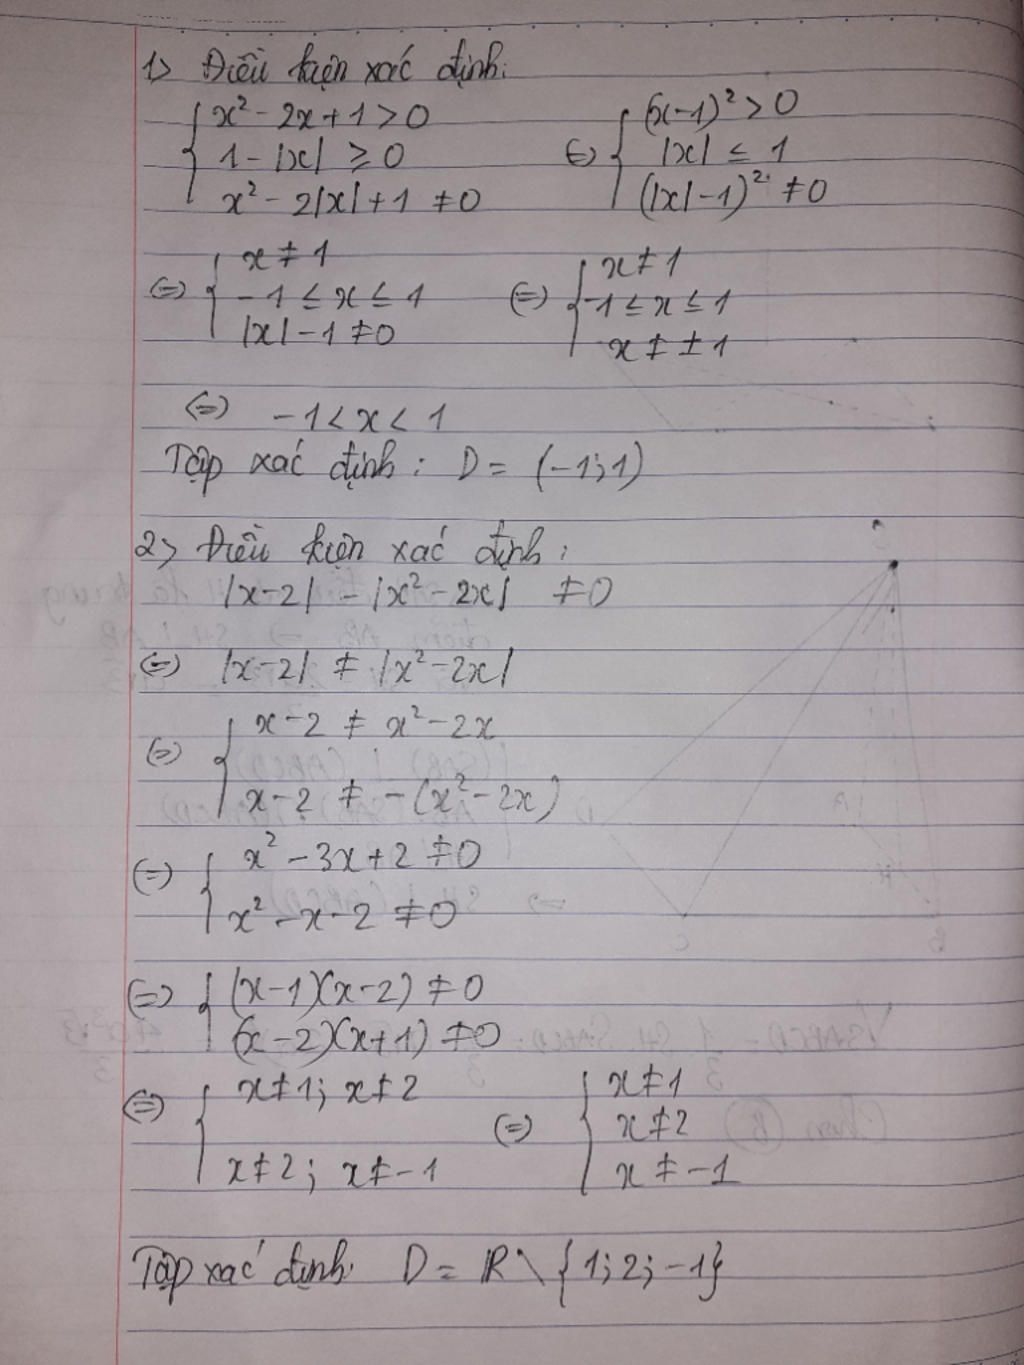 1> Điều kiện xác định:
x² - 2x + 1 > 0
1 - |x| ≥ 0
x² - 2|x| + 1 ≠ 0
⇔ (x-1)² > 0
|x| ≤ 1
(|x| - 1)² ≠ 0
⇔ x ≠ 1
-1 ≤ x ≤ 1
|x| - 1 ≠ 0
⇔ x ≠ 1
-1 ≤ x ≤ 1
x ≠ ± 1
⇔ -1 < x < 1
Tập xác định: D = (-1;1)
2> Điều kiện xác định:
|x-2| - |x² - 2x| ≠ 0
⇔ |x-2| ≠ |x² - 2x|
⇔ x - 2 ≠ x² - 2x
x - 2 ≠ - (x² - 2x)
⇔ x² - 3x + 2 ≠ 0
x² - x - 2 ≠ 0
⇔ (x-1)(x-2) ≠ 0
(x-2)(x+1) ≠ 0
⇔ x ≠ 1; x ≠ 2
x ≠ 2; x ≠ -1
⇔ x ≠ 1
x ≠ 2
x ≠ -1
Tập xác định. D = R \ {1; 2; -1}